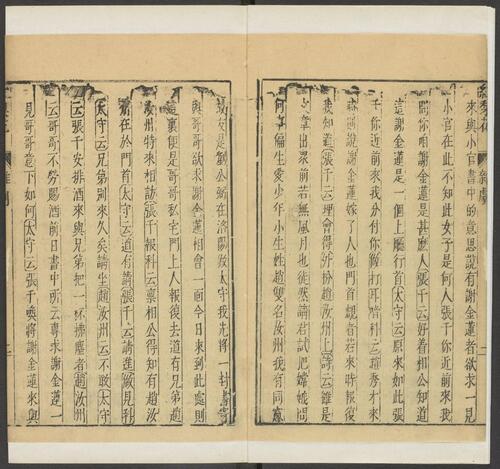 紅梨花 雜劇
來與小官書中的意思說有謝金蓮者欲求一見
小官在此不知此女子是何人張千你近前來我
問你咱謝金蓮是甚麽人張千云好着相公知道
這謝金蓮是一個上廳行首太守云原來如此張
千你近前來我分付你
說謝金蓮嫁了人也門首覷者若來時報復
我知道張千云理會得外扮趙汝州上
章出衆前若無風月也徒然
偏生愛少年小生姓趙雙名汝州我有同
是劉公弼在洛陽做太守我先將一封書
與哥哥欲求謝金蓮相會一面今日來到此處則
這裏便是哥哥私宅門上人報復去道有兄弟趙
汝州特來相訪張千報科云稟相公得知有趙汝
州在於門首太守云道有請張千云請進做見科
太守云兄弟別來久矣請坐趙汝州云不敢太守
云張千安排酒來與兄弟把一杯拂塵者趙汝州
云哥哥不勞賜酒前日書中所云專求謝金蓮一
見哥哥意下如何太守云張千喚將謝金蓮來與